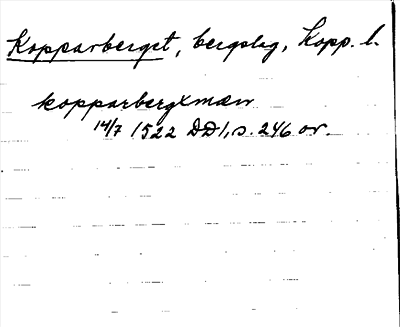 Kopparberget, bergslag, Kopp. l.
kopparbergxmæn
14/7 1522 DD1, s. 246 or.